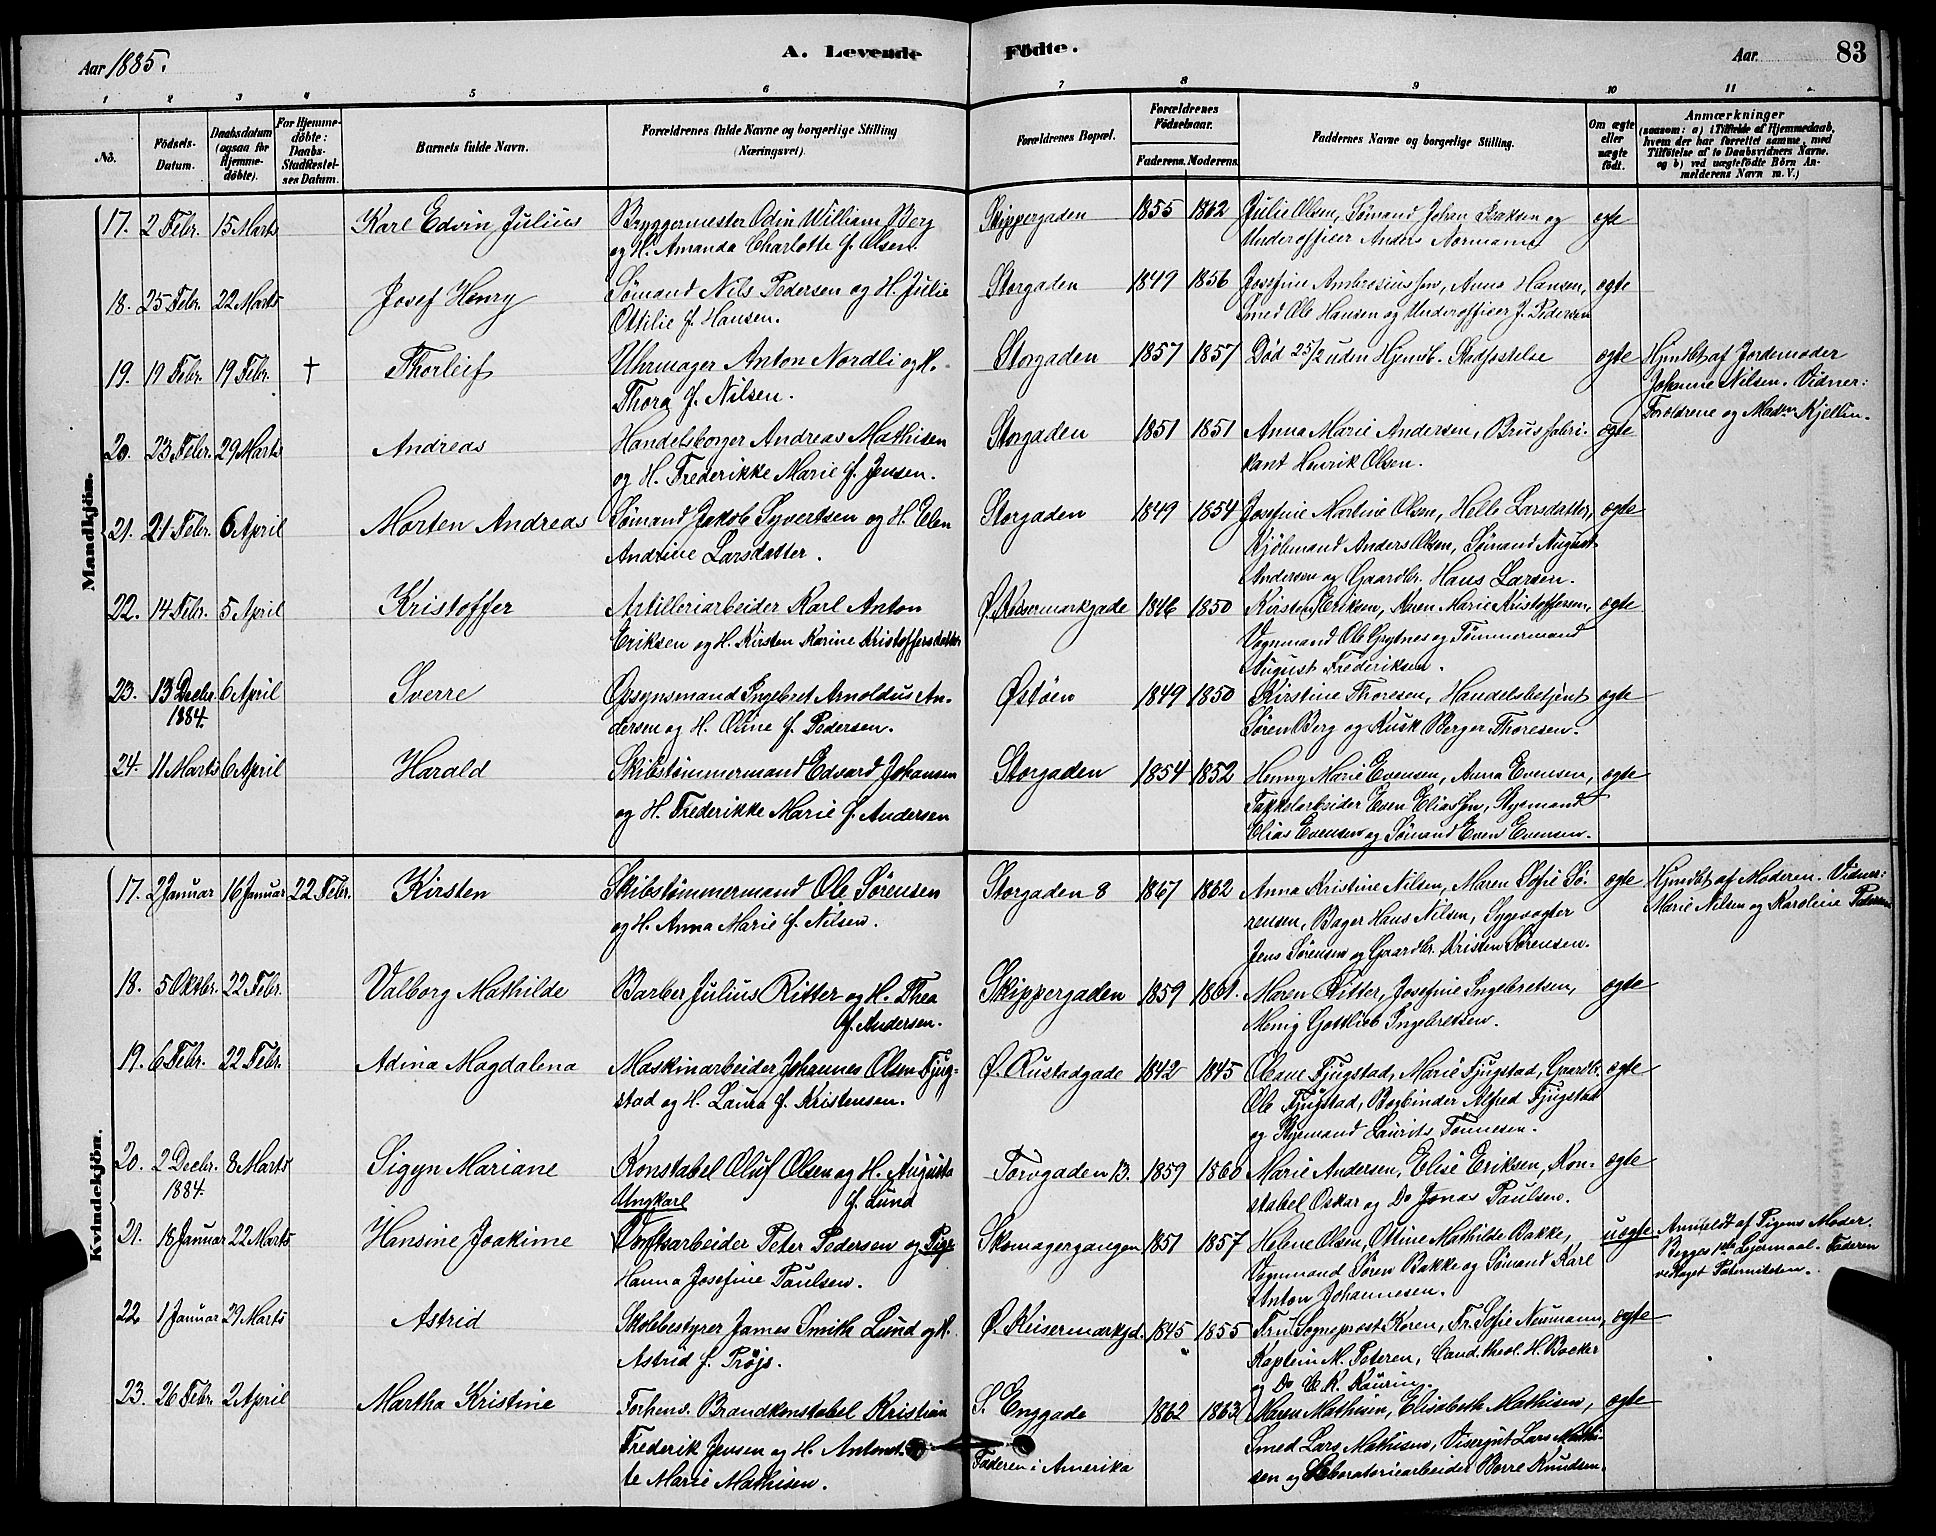 Aar 1885.
A. Levende Födte.
Aar 83
1 2 3 4 5 6 7 8 9 10 11
No.
Födsels-Datum.
Daabsdatum (ogsaa for Hjemme-döbte).
For Hjemme-döbte: Daabs-Stadfæstel-ses Datum.
Barnets fulde Navn.
Forældrenes fulde Navne og borgerlige Stilling (Næringsvei).
Forældrenes Bopæl.
Forældrenes Födselsaar.
Faderens. Moderens.
Faddernes Navne og borgerlige Stilling.
Om ægte eller uægte födt.
Anmærkninger
(saasom: a) i Tilfælde af Hjemmedaab, hvem der har forrettet samme, med Tilföielse af to Daabsvidners Navne. og b) ved uægtefödte Börn An-melderens Navn m. V.)
Mandkjön.
17. 2 Febr. 15 Marts Karl Edvin Julius Bryggermester Odin William Berg Skippergaden 1855 1862 Julie Olsen, Sømand Johan Isaksen og ægte
og H. Amanda Charlotte f. Olsen Underofficer Anders Normann
18. 25 Febr. 22 Marts Josef Henry Sømand Nils Pedersen og H. Julie Storgaden 1849 1856 Josefine Ambrosiussen, Anna Hansen, ægte
Ottilie f. Hansen. Smed Ole Hansen og Underofficer J. Pedersen
19. 19 Febr. 19 Febr. † Thorleif Uhrmager Anton Nordli og H. Storgaden 1857 1857 Død 25/2 uden Hjmdb. Stadfestelse ægte Hjmdbt af Jordemoder
Thora f. Nilsen. Johanne Nilsen. Vidner:
Forældrene og Madm Kjellin.
20. 23 Febr. 29 Marts Andreas Handelsborger Andreas Mathisen Storgaden 1851 1851 Anna Marie Andersen, Brusfabri- ægte
og H. Frederikke Marie f. Jensen. kant Henrik Olsen.
21. 21 Febr. 6 April Morten Andreas Sømand Jakob Syvertsen og H. Elen Storgaden 1849 1854 Josefine Martine Olsen, Helle Larsdatter, ægte
Andrine Larsdatter. Kjøbmand Anders Olsen, Sømand August
Andersen og Gaardbr. Hans Larsen.
22. 14 Febr. 5 April Kristoffer Artilleriarbeider Karl Anton Ø. Keisermarkgade 1846 1850 Kirsten Eriksen, Karen Marie Kristoffersen, ægte
Eriksen og H. Kirsten Karine Kristoffersdatter Vognmand Ole Grytnes og Tømmermand
August Frederiksen.
23. 13 Decbr. 6 April Sverre Opsynsmand Ingebret Arnoldus An- Østøen 1849 1850 Kirstine Thoresen, Handelsbetjent ægte
1884. dersen og H. Oline f. Pedersen. Søren Berg og Kusk Berger Thoresen.
24. 11 Marts 6 April Harald Skibstømmermand Edvard Johansen Storgaden 1854 1852 Henny Marie Evensen, Anna Evensen, ægte
og H. Frederikke Marie f. Andersen Takkelarbeider Even Eliassen, Styrmand
Elias Evensen og Sømand Even Evensen.
Kvindekjön.
17. 2 Januar 16 Januar 22 Febr. Kirsten Skibstømmermand Ole Sørensen Storgaden 8 1867 1862 Anna Kristine Nilsen, Maren Sofie Sø- ægte Hjmdbt af Moderen. Vidner:
og H. Anna Marie f. Nilsen. rensen, Bager Hans Nilsen, Sygevogter Marie Nilsen og Karoline Petersen
Jens Sørensen og Gaardbr. Kristen Sørensen.
18. 5 Oktbr. 22 Febr. Valborg Mathilde Barber Julius Ritter og H. Thea Skippergaden 1859 1861. Maren Ritter, Josefine Ingebretsen, ægte
f. Andersen. Menig Gottlieb Ingebretsen.
19. 6 Febr. 22 Febr. Adina Magdalena Maskinarbeider Johannes Olsen Fjug- Ø. Rustadgade 1842 1845 Oleane Fjugstad, Marie Fjugstad, Gaardbr. ægte
stad og H. Laura f. Kristensen. Ole Fjugstad, Bogbinder Alfred Fjugstad
og Styrmand Laurits Tønnesen.
20. 2 Decbr. 8 Marts Sigyn Mariane Konstabel Oluf Olsen og H. Augusta Torvgaden 13. 1859 1860 Marie Andersen, Elise Eriksen, Kon- ægte
1884. f. Lund stabel Oskar og Do Jonas Paulsen.
Ungkarl
21. 18 Januar 22 Marts Hansine Joakime Værftsarbeider Peter Pedersen og Pige Skomagergangen 1851 1857 Helene Olsen, Ottine Mathilde Bakke, uægte Anmeldt af Pigens Moder.
Hanna Josefine Paulsen. Vognmand Søren Bakke og Sømand Karl Begges 1ste Leiermaal. Faderen
Anton Johannesen. vedtaget Paterniteten.
22. 1 Januar 29 Marts Astrid Skolebestyrer James Smith Lund og H. Ø. Keisermarkgd. 1845 1855 Fru Sogneprost Koren, Fr. Sofie Neumann, ægte
Astrid f. Prøjs. Kaptein M. Petersen, Cand. theol. H. Backer
og Do C. K. Kaurin.
23. 26 Febr. 2 April Martha Kristine Forhenv. Brandkonstabel Kristian S. Enggade 1862 1863 Maren Mathisen, Elisabeth Mathisen, ægte
Frederik Jensen og H. Antonet- Smed Lars Mathisen, Visergut Lars Mathi-
te Marie Mathisen. Faderen i Amerika sen og Laboratoriearbeider Borre Knudsen.